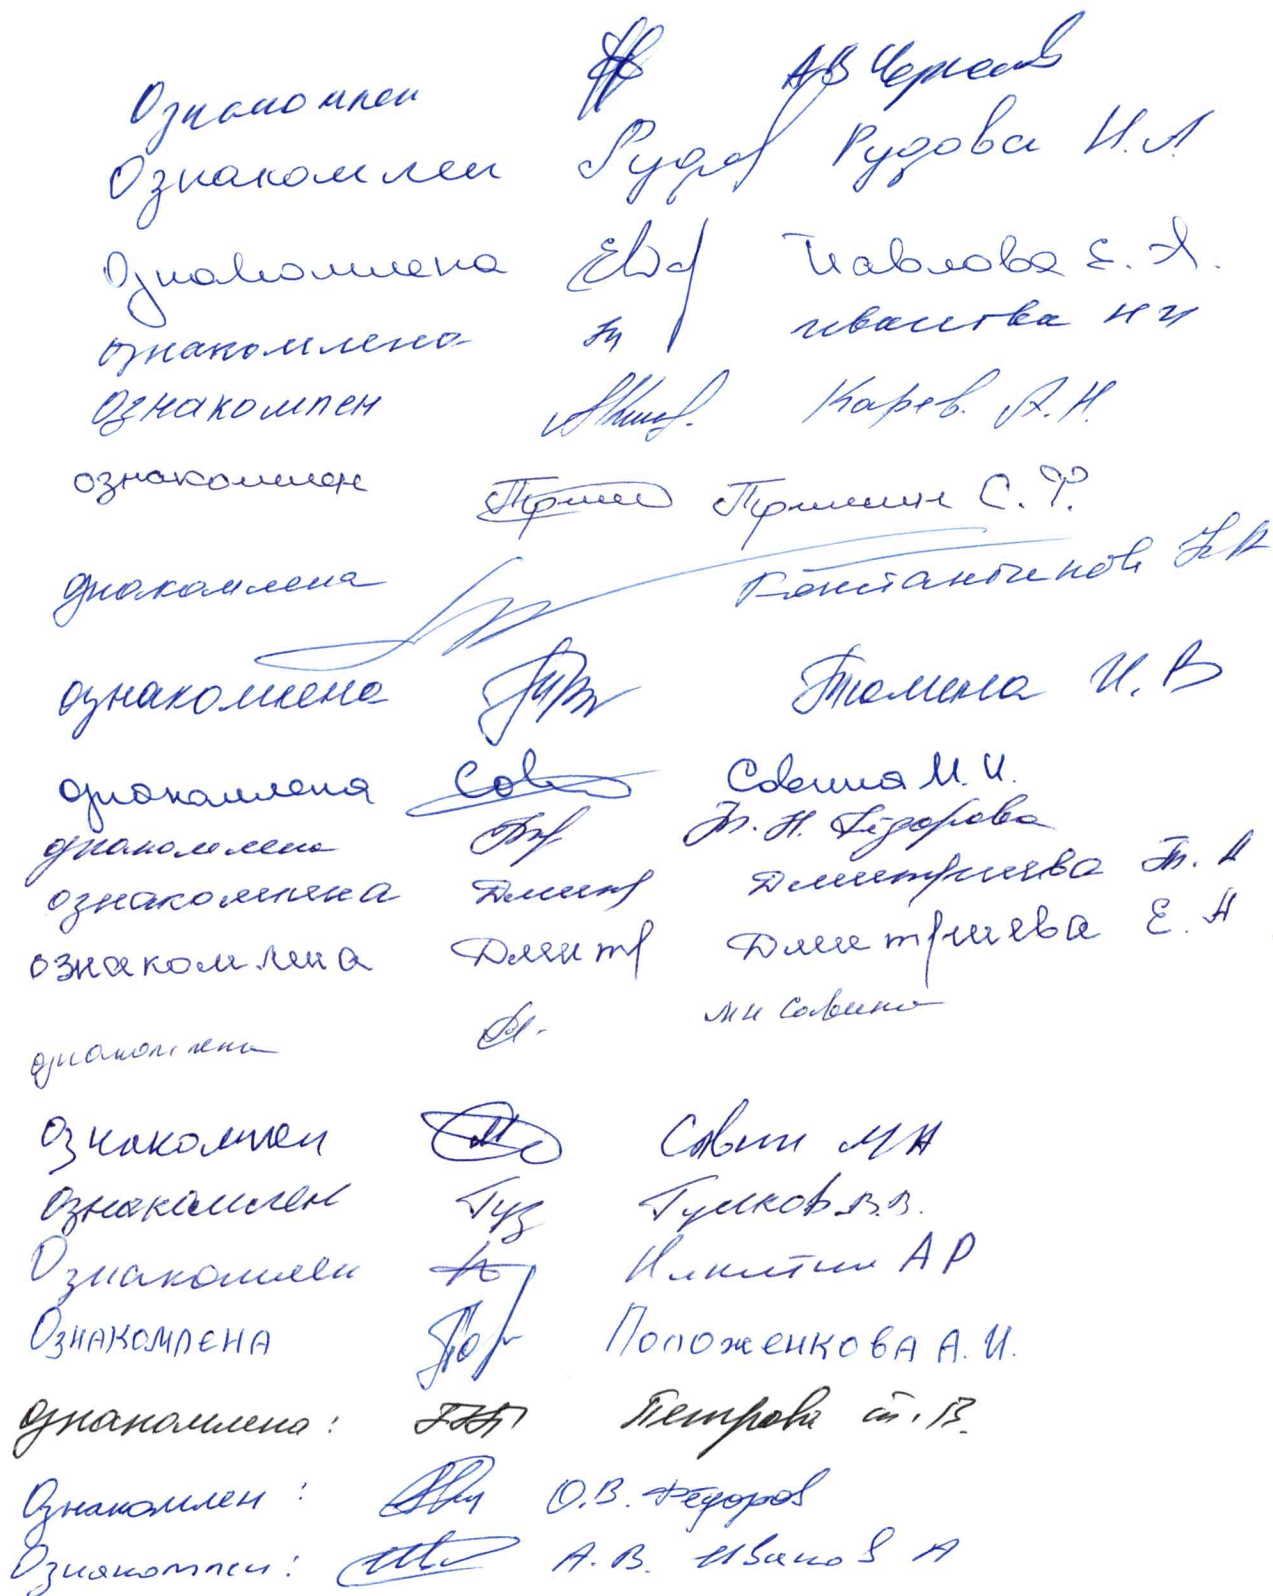 Ознакомлен АВ
Ознакомлен Рудова Н.А
Ознакомлена Павлова Е.А.
ознакомлена НИ
ознакомлен Карев. А.Н.
ознакомлен С.Ф.
ознакомлена
ознакомлена Томина И.В
ознакомлена Сов Савина М.И.
ознакомлена Т.Н. Фёдорова
ознакомлена Дмит Дмитриева Т.А
ознакомлена Дмитр Дмитриева Е.Н
ознакомлена МИ Савина
ознакомлен Савин МН
ознакомлен В.В.
Ознакомлен Никитин АР
Ознакомлена Положенкова А.И.
ознакомлена: Петрова Т.В.
Ознакомлен: О.В. Фёдоров
Ознакомлен: А.В. Иванов А